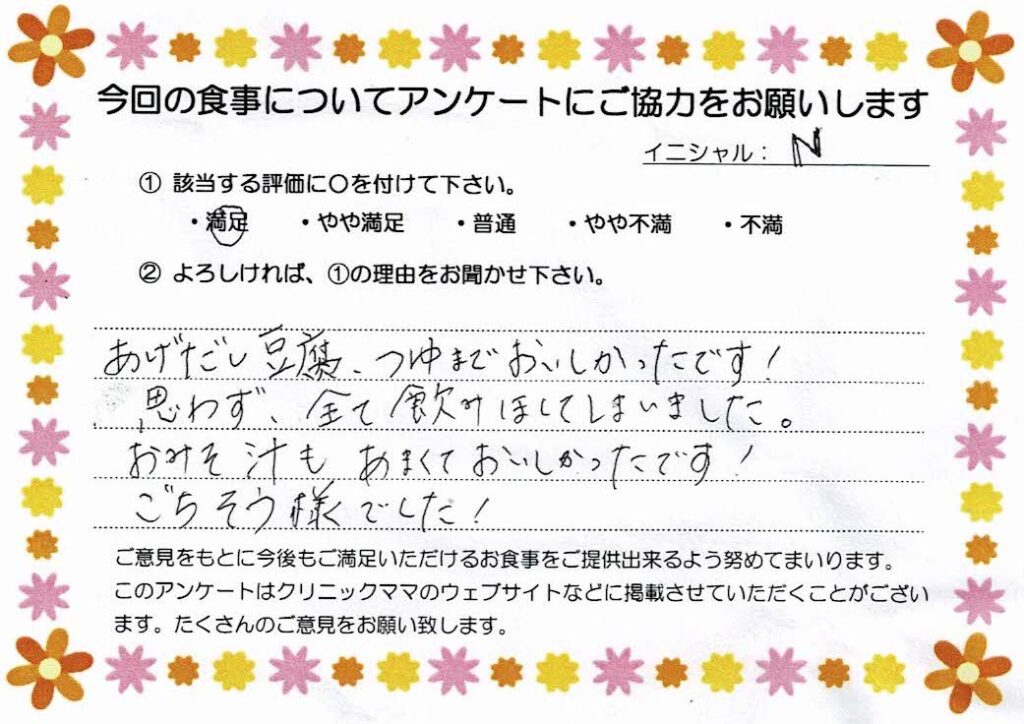 今回の食事についてアンケートにご協力をお願いします
イニシャル： N
① 該当する評価に〇を付けて下さい。
・満足 ・やや満足 ・普通 ・やや不満 ・不満
② よろしければ、①の理由をお聞かせ下さい。
あげだし豆腐、つゆまでおいしかったです！
思わず、全て飲みほしてしまいました。
おみそ汁も あまくておいしかったです！
ごちそう様でした！
ご意見をもとに今後もご満足いただけるお食事をご提供出来るよう努めてまいります。
このアンケートはクリニックママのウェブサイトなどに掲載させていただくことがござい
ます。たくさんのご意見をお願い致します。